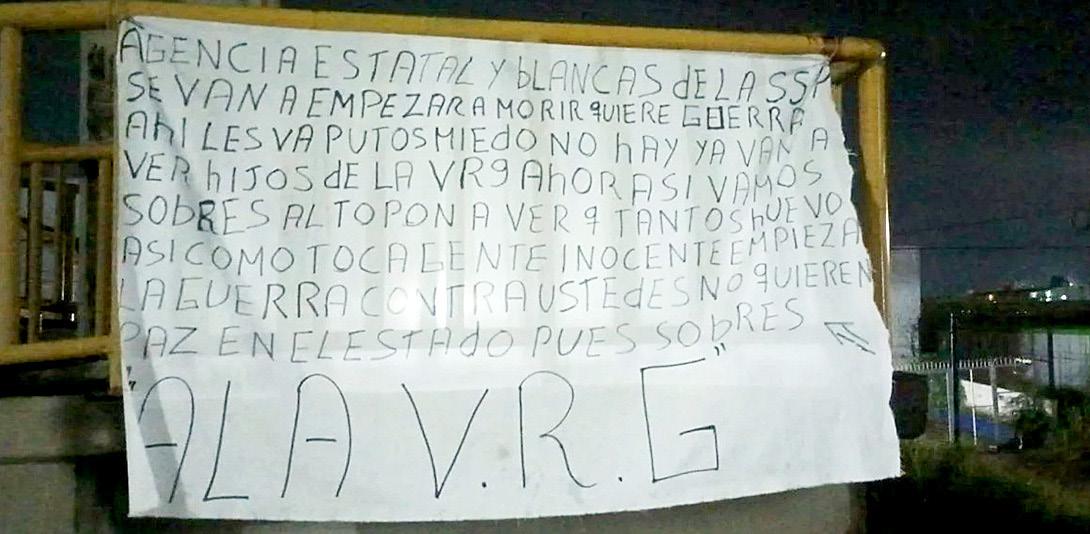 AGENCIA ESTATAL Y bLANCAS dE LA SSP
SE VAN A EMPEZAR A MORIR qUIERE GUERRA
AhI LES VA PUTOS MIEdO NO hAY YA VAN A
VER hIJOS dE LA VR9 AhORA SI VAMOS
SObRES AL TOPON A VER q TANTOS hUEVO
ASI COMO TOCA GENTE INOCENTE EMPIEZA
LA GUERRA CONTRA USTEdES NO qUIEREN
PAZ EN EL ESTAdO PUES SObRES
"A LA V.R.G"